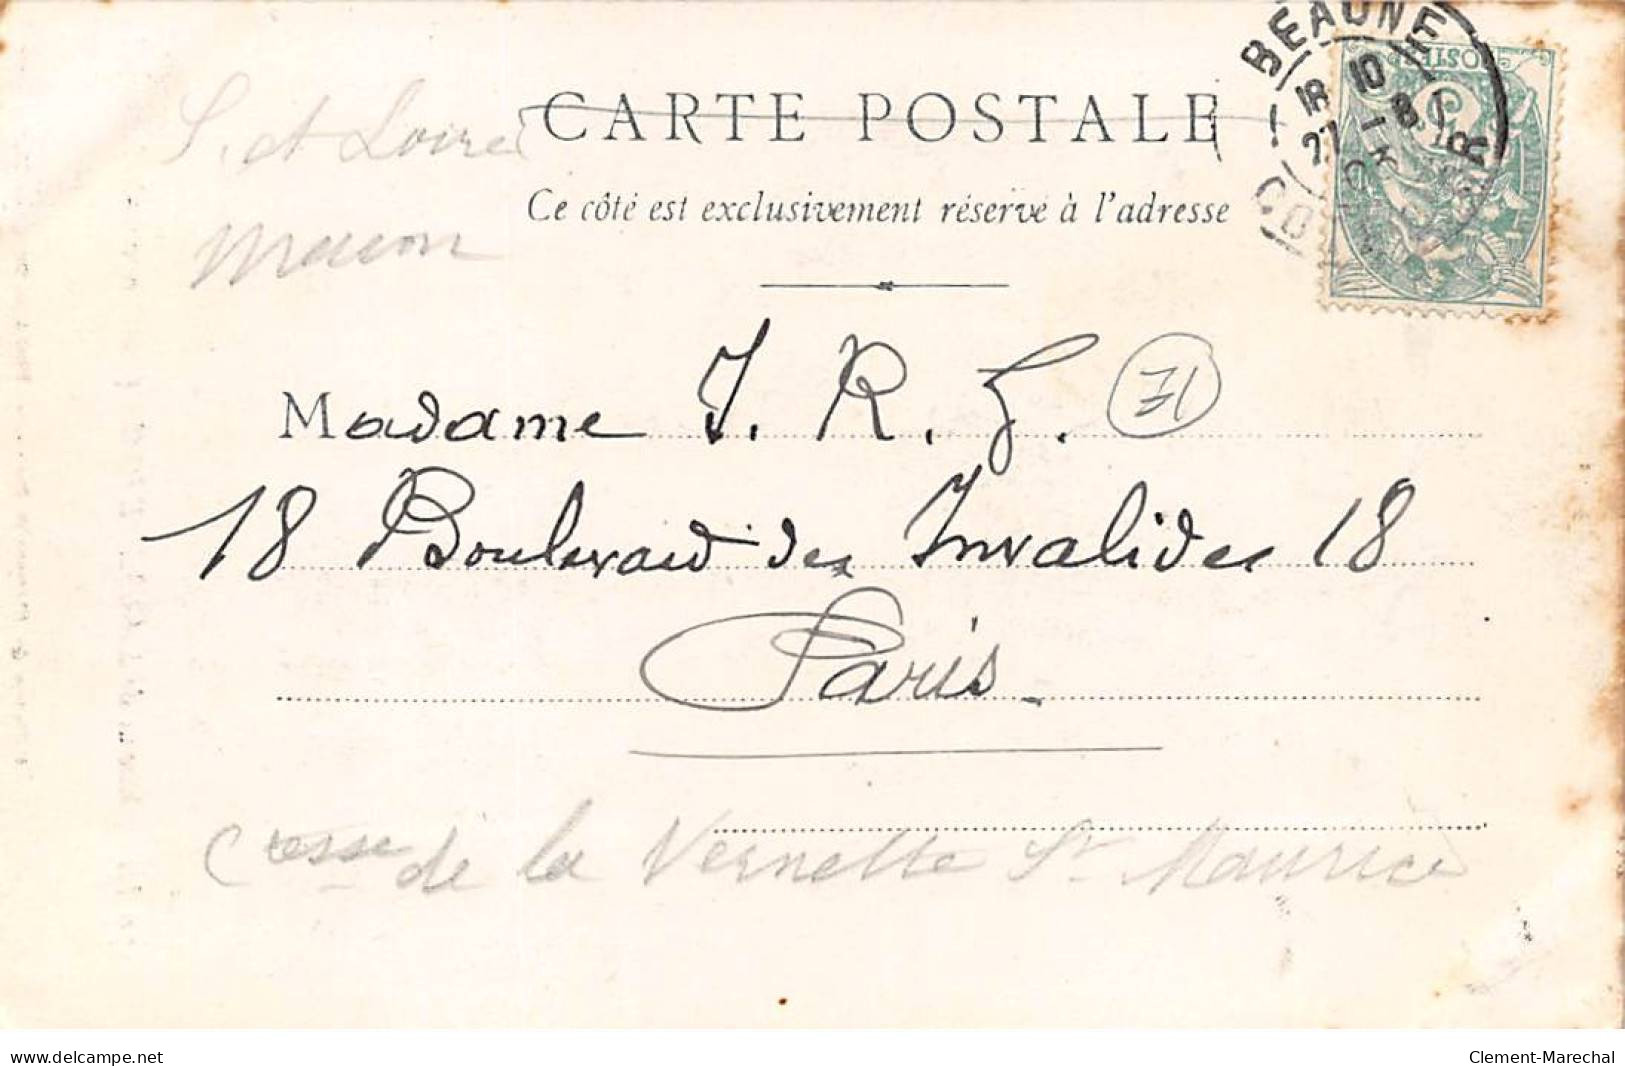 BEAUNE
18 10
27 -8
CARTE POSTALE
POSTES
S. et Loire
Macon
Ce côté est exclusivement réservé à l'adresse
Madame J. R. G.
71
18 Boulevard des Invalides 18
Paris
Ctesse de la Vernette St Maurice
www.delcampe.net
Clement-Marechal